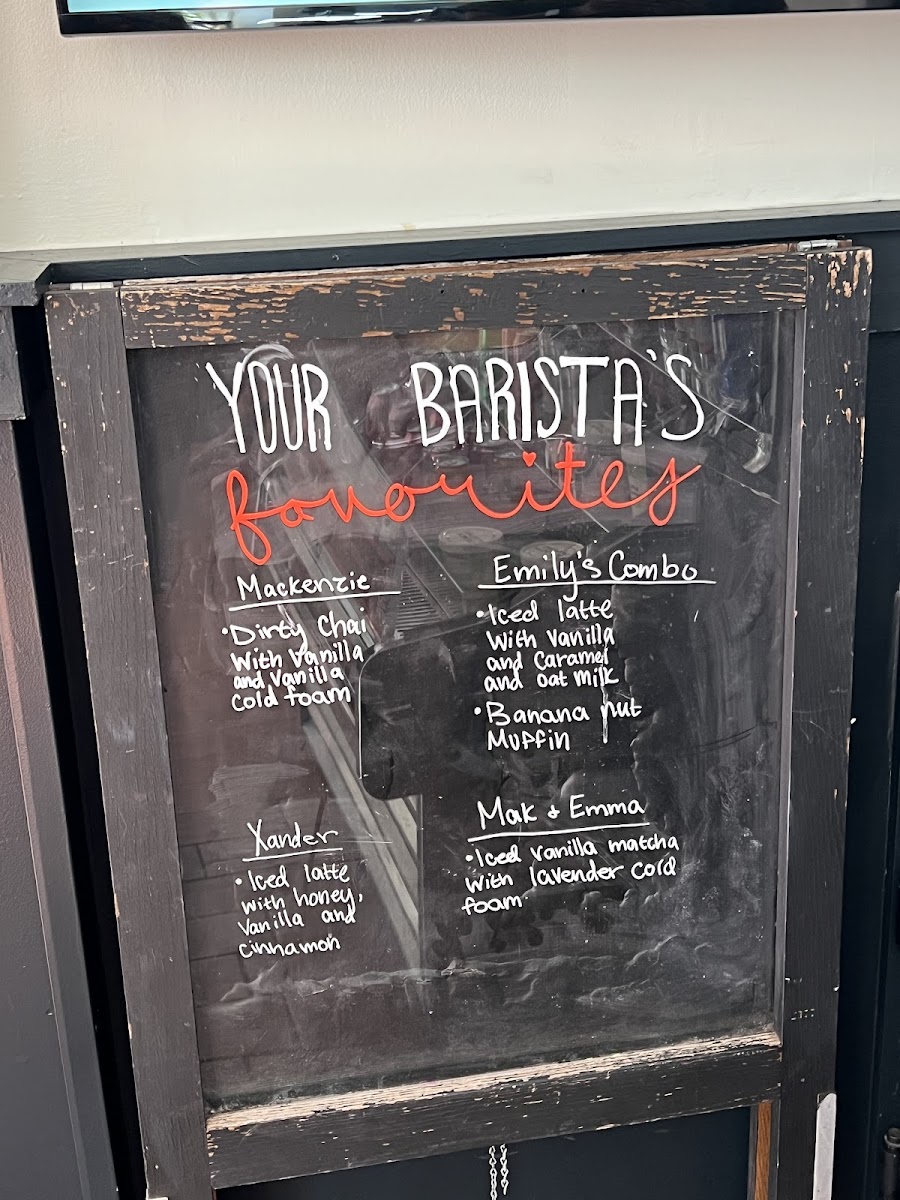 YOUR BARISTA'S
favourites
Mackenzie
• Dirty Chai
With Vanilla
and Vanilla
Cold foam
Emily's Combo
• Iced latte
With Vanilla
and Caramel
and oat milk
• Banana nut
Muffin
Xander
• Iced latte
with honey,
Vanilla and
cinnamon
Mak & Emma
• Iced vanilla matcha
with lavender cold
foam.